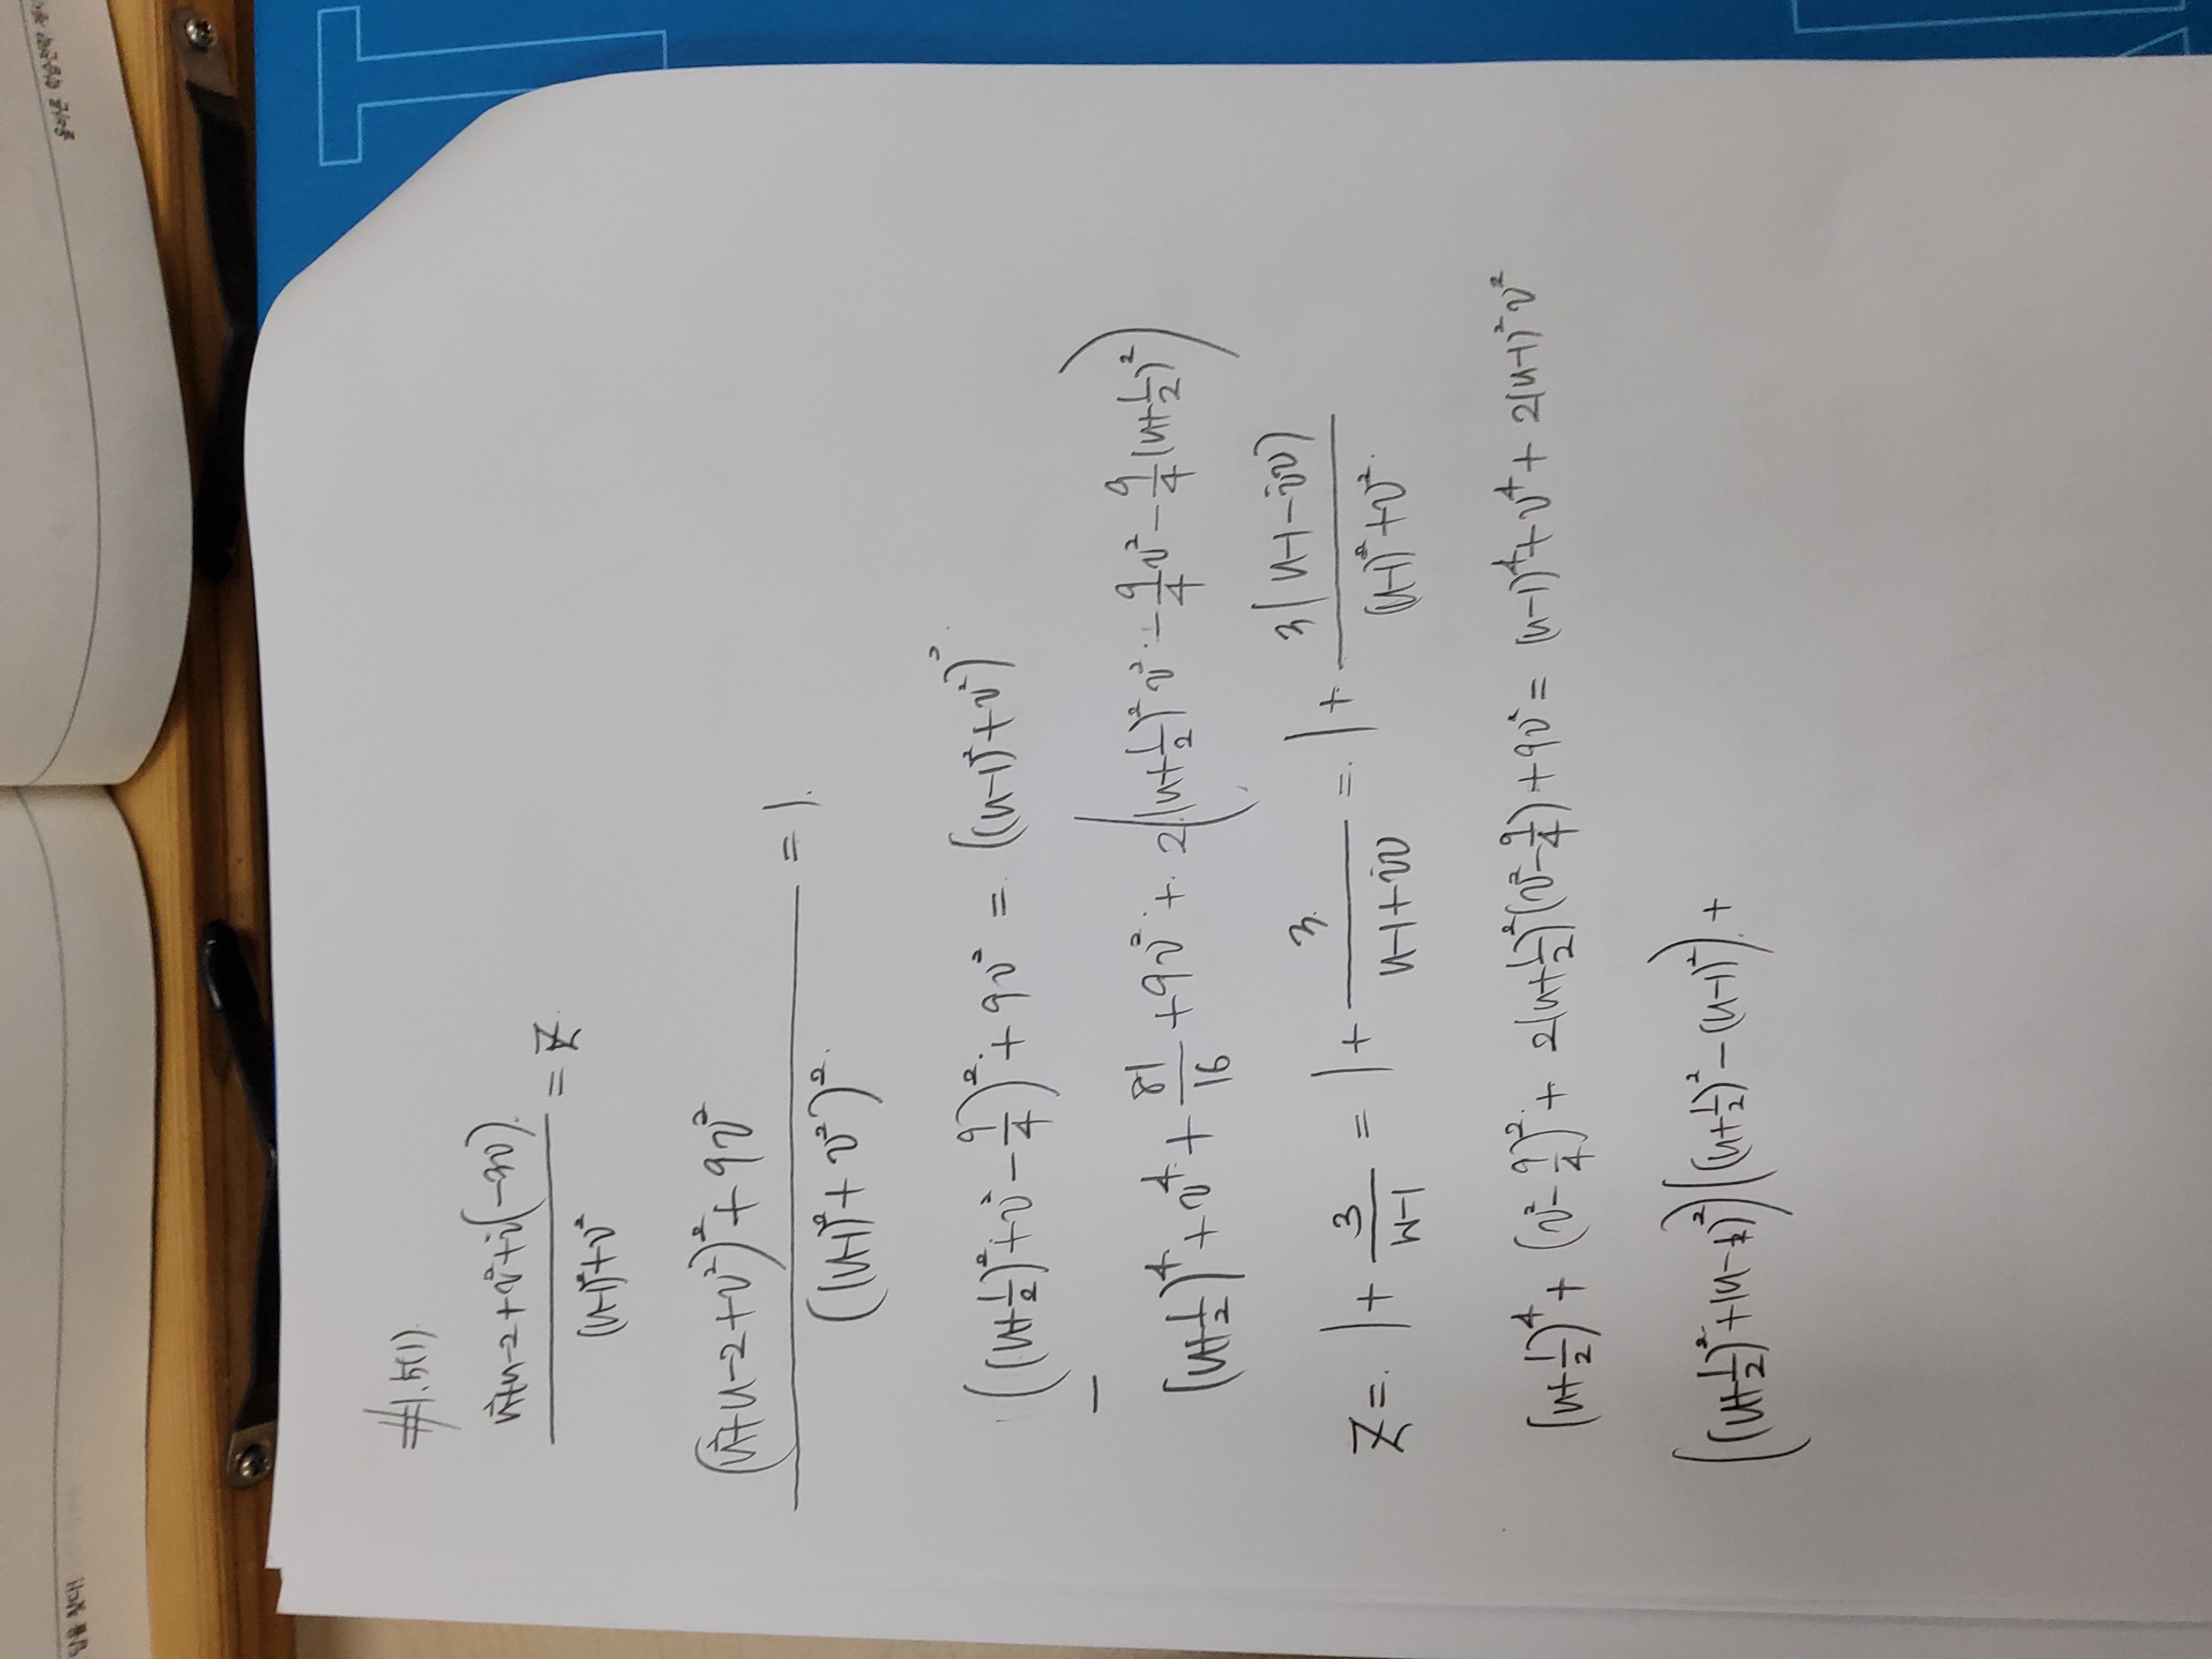 #1.5(1)
u²+u-2+v²+i(-3v) / (u-1)²+v² = z.
(u²+u-2+v²)²+9v² / ((u-1)²+v²)² = 1.
((u+1/2)²+v²-9/4)²+9v² = ((u-1)²+v²)².
(u+1/2)⁴+v⁴+81/16+9v²+2((u+1/2)²v²-9/4v²-9/4(u+1/2)²)
z = 1+3/w-1 = 1+3/u-1+iv = 1+3(u-1-iv)/(u-1)²+v².
(u+1/2)⁴+(v²-9/4)²+2(u+1/2)²(v²-9/4)+9v² = (u-1)⁴+v⁴+2(u-1)²v²
((u+1/2)²-(u-1)²)+